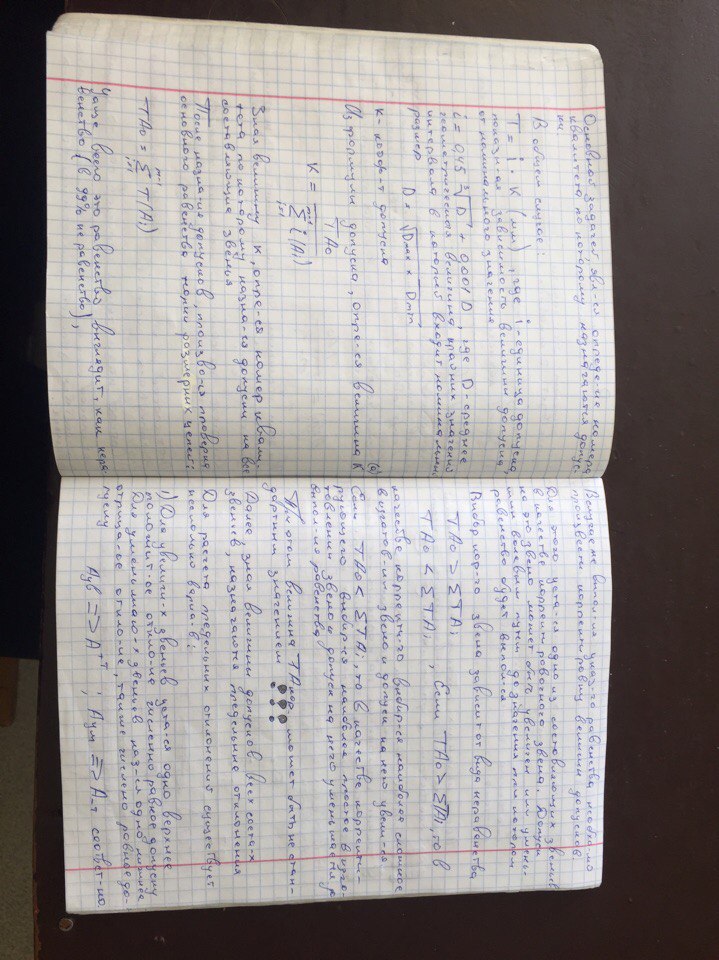 Основной задачей явл-ся определ-ие номера
квалитета по которому назначаются допус-
ки
В общем случае:
T = i · K (мкм), где i-единица допуска,
показ-ная зависимость величины допуска,
от номинального значения
i = 0,45 ∛D + 0,001D, где D-среднее
геометрическая величина крайних значений
интервала в который входит номинальный
размер D = √Dmax × Dmin
K-коэф-т допуска
Из формулы допуска, опре-ся величина K
(а)
K = TA₀ / Σ i(Ai)
Зная величину K, опре-ся номер квали-
тета по которому назна-ся допуски на все
составляющие звенья
После назна-ия допусков, произво-ся проверка
основного равенства теории размерных цепей:
TA₀ = Σ T(Ai)
Чаще всего это равенство выглядит, как нера-
венство (в 99% не равенство),
В случае не выпол-ия указ-го равенства необх-мо
произвести корректировку величин допусков
Для этого устан-ся одно из составляющих звеньев
в качестве корректировочного звена. Допуск
на это звено может быть увеличен или умень-
шен волевым путем до значения при котором
равенство будет выпол-ся
Выбор кор-го звена зависит от вида неравенства
TA₀ > ΣTAi
TA₀ < ΣTAi , Если TA₀ > ΣTAi, то в
качестве коррект-го выбир-ся наиболее сложное
в изготов-ии звено и допуск на него увел-ся
Если TA₀ < ΣTAi, то в качестве корректи-
рующего выбир-ся наиболее простое в изго-
товлении звено и допуск на него уменьшается до
выпол-ия равенства
При этом величина TAкор может быть не стан-
дартным значением
Далее зная величины допусков всех состав-х
звеньев, назначаются предельные отклонения
Для расчета предельных отклонений существует
несколько вариа-в:
1) Для увелич-х звеньев устан-ся одно верхнее
полож-ое откло-ие численно равное допуску
Для уменьшаю-х звеньев наз-ся одно нижнее
отрица-ое откло-ие, также числено равное до-
пуску
Аув ⇒ А⁺ᵀ, Аум ⇒ А₋ᵀ соотвт-но